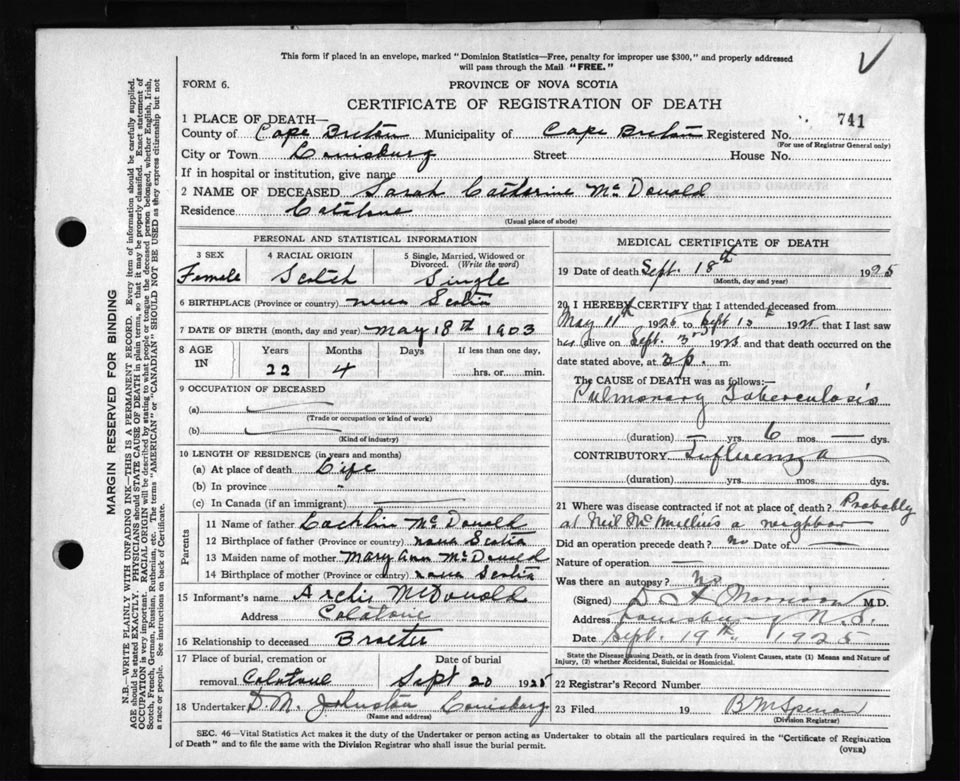 This form if placed in an envelope, marked "Dominion Statistics—Free, penalty for improper use $300," and properly addressed
will pass through the Mail "FREE."
FORM 6.
PROVINCE OF NOVA SCOTIA
CERTIFICATE OF REGISTRATION OF DEATH
1 PLACE OF DEATH—
741
County of Cape Breton Municipality of Cape Breton Registered No.
(For use of Registrar General only)
City or Town Louisburg Street House No.
If in hospital or institution, give name
2 NAME OF DECEASED Sarah Catherine McDonald
Residence Catalone
(Usual place of abode)
PERSONAL AND STATISTICAL INFORMATION
3 SEX 4 RACIAL ORIGIN 5 Single, Married, Widowed or
Divorced. (Write the word)
Female Scotch Single
6 BIRTHPLACE (Province or country) nova Scotia
7 DATE OF BIRTH (month, day and year) May 18th 1903
8 AGE IN Years Months Days If less than one day,
22 4 hrs. or min.
9 OCCUPATION OF DECEASED
(a)
(Trade or occupation or kind of work)
(b)
(Kind of industry)
10 LENGTH OF RESIDENCE (in years and months)
(a) At place of death Life
(b) In province -
(c) In Canada (if an immigrant)
Parents
11 Name of father Lachlin McDonald
12 Birthplace of father (Province or country) nova Scotia
13 Maiden name of mother Mary Ann McDonald
14 Birthplace of mother (Province or country) nova Scotia
15 Informant's name McDonald
Address
16 Relationship to deceased
17 Place of burial, cremation or Date of burial
removal Sept 20 1925
18 Undertaker D. M. Johnston Louisburg
(Name and address)
MEDICAL CERTIFICATE OF DEATH
19 Date of death Sept. 18th 1925
(Month, day and year)
20 I HEREBY CERTIFY that I attended deceased from
May 11th 1925 to Sept 192 that I last saw
h alive on Sept. 3 1925 and that death occurred on the
date stated above, at 3 p. m.
The CAUSE of DEATH was as follows:—
Pulmonary Tuberculosis
(duration) — yrs. 6 mos. — dys.
CONTRIBUTORY Influenza
(duration) yrs. mos. dys.
21 Where was disease contracted if not at place of death? Probably
at Neil McMullin's a neighbor
Did an operation precede death? no Date of —
Nature of operation —
Was there an autopsy? No
(Signed) Morrison M.D.
Address Louisburg N.S.
Date Sept. 19th 1925
State the Disease causing Death, or in death from Violent Causes, state (1) Means and Nature of
Injury, (2) whether Accidental, Suicidal or Homicidal.
22 Registrar's Record Number
23 Filed 19
(Division Registrar)
SEC. 46—Vital Statistics Act makes it the duty of the Undertaker or person acting as Undertaker to obtain all the particulars required in the "Certificate of Registration
of Death" and to file the same with the Division Registrar who shall issue the burial permit.
(OVER)
MARGIN RESERVED FOR BINDING
N.B.—WRITE PLAINLY WITH UNFADING INK—THIS IS A PERMANENT RECORD. Every item of information should be carefully supplied.
AGE should be stated EXACTLY. PHYSICIANS should STATE CAUSE OF DEATH in plain terms, so that it may be properly classified. Exact statement of
OCCUPATION is very important. RACIAL ORIGIN will be described by stating to what people or tongue the deceased person belonged, whether English, Irish,
Scotch, French, German, Russian, Ruthenian, etc. The terms "AMERICAN" or "CANADIAN" SHOULD NOT BE USED as they express citizenship but not
a race or people. See instructions on back of Certificate.